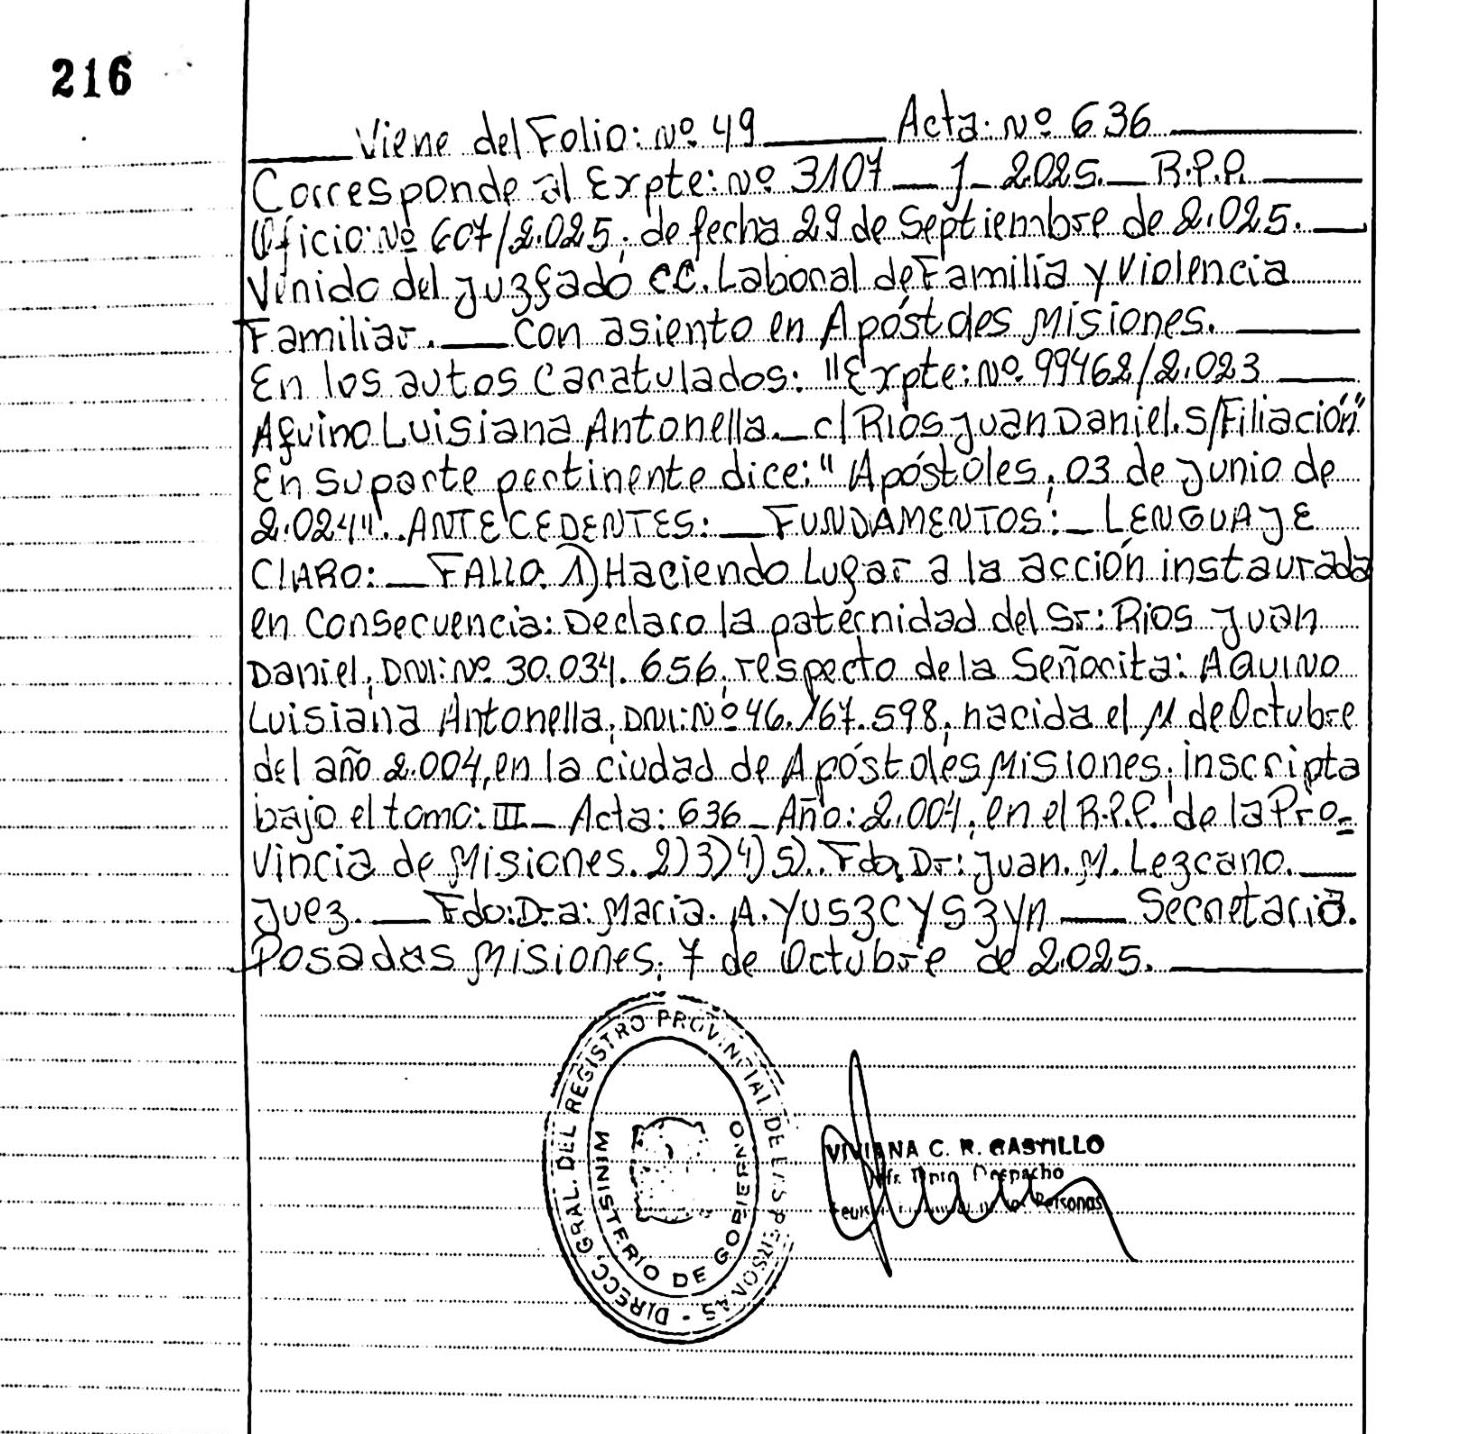 216
Viene del Folio: Nº 49 Acta: Nº 636
Corresponde al Expte: Nº 3107 _ J _ 2.025. _ R.P.P.
Oficio: Nº 607/2.025, de fecha 29 de Septiembre de 2.025.
Vinido del Juzgado CC. Laboral de Familia y Violencia
Familiar. _ Con asiento en Apóstoles Misiones.
En los autos Caratulados: "Expte: Nº 99462/2.023
Aquino Luisiana Antonella _ c/ Rios Juan Daniel. S/Filiación"
En su parte pertinente dice: "Apóstoles, 03 de Junio de
2.024". ANTECEDENTES: _ FUNDAMENTOS: _ LENGUAJE
CLARO: _ FALLO. 1) Haciendo Lugar a la acción instaurada
en Consecuencia: Declaro la paternidad del Sr: Rios Juan
Daniel, DNI: Nº 30.034.656, respecto de la Señorita: AQUINO
Luisiana Antonella, DNI: Nº 46.167.598, nacida el 11 de Octubre
del año 2.004, en la ciudad de Apóstoles Misiones, inscripta
bajo el tomo: III _ Acta: 636 _ Año: 2.004, en el R.P.P. de la Pro=
vincia de Misiones. 2) 3) 4) 5). Fdo, Dr: Juan. M. Lezcano.
Juez. _ Fdo: Dra: Maria. A. Yuszcyszyn _ Secretaria.
Posadas Misiones, 7 de Octubre de 2.025.
DIRECC. GRAL. DEL REGISTRO PROVINCIAL DE LAS PERSONAS -
MINISTERIO DE GOBIERNO
VIVIANA C. R. CASTILLO
Dpto Despacho
Personas